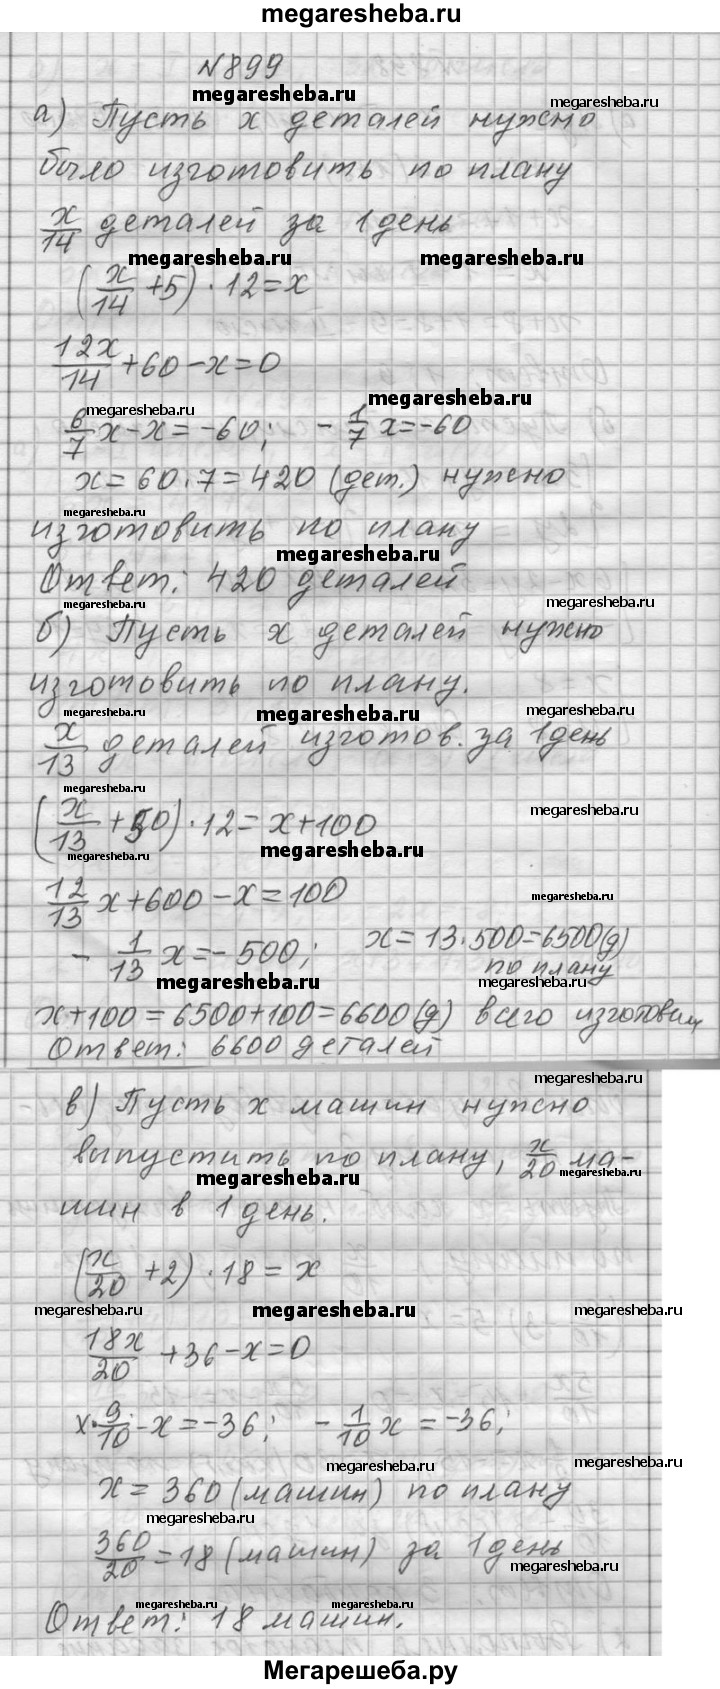 megaresheba.ru
№899
megaresheba.ru
megaresheba.ru
а) Пусть x деталей нужно
было изготовить по плану
x/14 деталей за 1 день
megaresheba.ru megaresheba.ru
(x/14 + 5) · 12 = x
12x/14 + 60 - x = 0
megaresheba.ru
megaresheba.ru
6/7 x - x = -60; - 1/7 x = -60
x = 60 · 7 = 420 (дет.) нужно
megaresheba.ru
изготовить по плану
megaresheba.ru
Ответ: 420 деталей
megaresheba.ru megaresheba.ru
б) Пусть x деталей нужно
изготовить по плану.
megaresheba.ru megaresheba.ru megaresheba.ru
x/13 деталей изготов. за 1 день
megaresheba.ru
megaresheba.ru
(x/13 + 50) · 12 = x + 100
megaresheba.ru megaresheba.ru
12/13 x + 600 - x = 100
megaresheba.ru
- 1/13 x = - 500; x = 13 · 500 = 6500 (д)
по плану
megaresheba.ru megaresheba.ru
x + 100 = 6500 + 100 = 6600 (д) всего изготовили
Ответ: 6600 деталей
megaresheba.ru
в) Пусть x машин нужно
выпустить по плану, x/20 ма-
megaresheba.ru megaresheba.ru
шин в 1 день.
(x/20 + 2) · 18 = x
megaresheba.ru megaresheba.ru megaresheba.ru
18x/20 + 36 - x = 0
x · 9/10 - x = -36; - 1/10 x = -36;
megaresheba.ru megaresheba.ru
x = 360 (машин) по плану
megaresheba.ru
360/20 = 18 (машин) за 1 день
megaresheba.ru
megaresheba.ru megaresheba.ru
Ответ: 18 машин.
Мегарешеба.ру